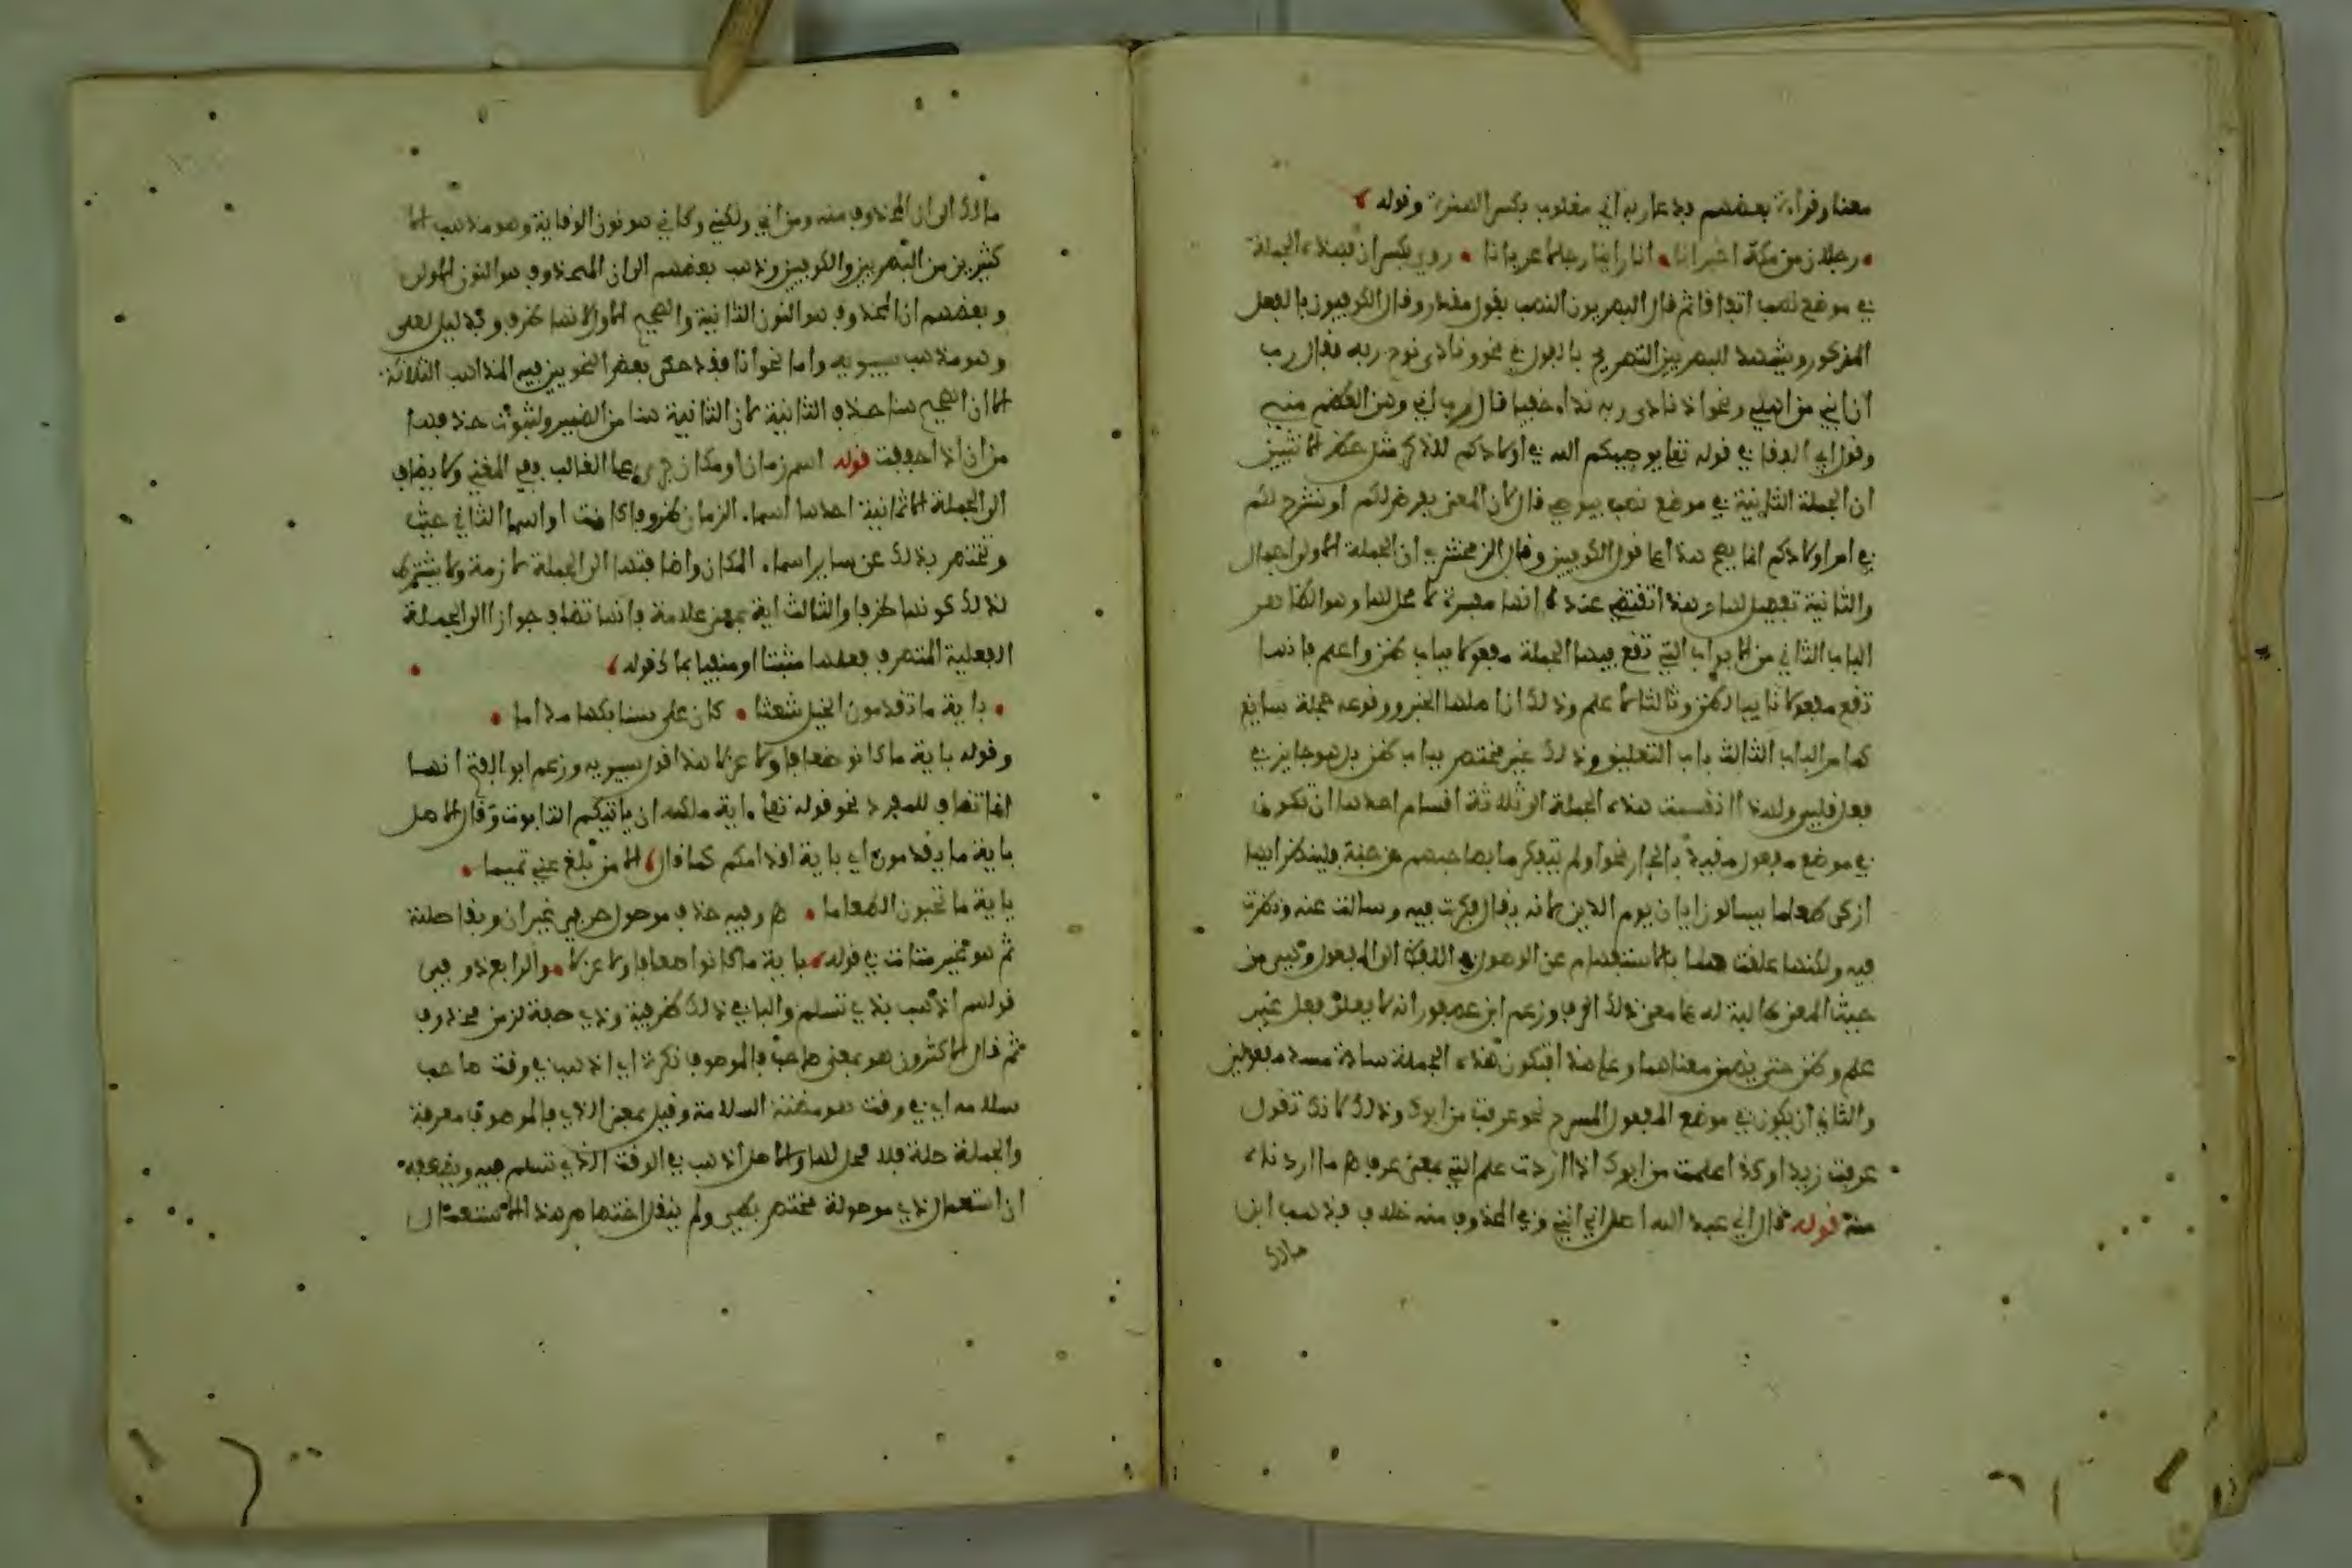 معنا وقراءة بعضهم فدعا ربه اني مغلوب بكسر الهمزة وقوله
رجلان من مكة اخبرانا انا راينا رجلا عريانا روي بكسر ان فهذه الجملة
في موضع نصب اتفاقا ثم قال البصريون النصب بقول مقدر وقال الكوفيون بالفعل
المذكور ويشهد للبصريين التصريح بالقول في نحو ونادى نوح ربه فقال رب
ان ابني من اهلي ونحو اذ نادى ربه نداء خفيا قال رب اني وهن العظم مني
وقول ابي البقا في قوله تعا يوصيكم الله في اولادكم للذكر مثل حظ الانثيين
ان الجملة الثانية في موضع نصب بيوصي قال لان المعنى يفرض لكم او يشرع لكم
في امر اولادكم انما يصح هذا على قول الكوفيين وقال الزمخشري ان الجملة الاولى اجمال
والثانية تفصيل لها وهذا يقتضي عنده انها مفسرة لا محل لها وهو الظاهر
الباب الثاني من الابواب التي تقع فيها الجملة مفعولا باب ظن واعلم فانها
تقع مفعولا ثانيا لظن وثالثا لاعلم وذلك ان اصلها الخبر ووقوعه جملة سايغ
كما مر الباب الثالث باب التعليق وذلك غير مختص بباب ظن بل هو جايز في
فعل قلبي ولهذا انقسمت هذه الجملة الى ثلاثة اقسام احدها ان تكون
في موضع مفعول مقيد بالجار نحو اولم يتفكروا ما بصاحبهم من جنة فلينظر ايها
ازكى طعاما يسالون ايان يوم الدين لانه يقال فكرت فيه وسالت عنه ونظرت
فيه ولكنها علقت هنا بالاستفهام عن الوصول في اللفظ الى المفعول وهي من
حيث المعنى طالبة له على معنى ذلك الحرف وزعم ابن عصفور انه لا يعلق فعل غير
علم وظن حتى يضمن معناهما وعلى هذا فتكون هذه الجملة سادة مسد مفعولين
والثاني ان يكون في موضع المفعول المسرح نحو عرفت من ابوك وذلك لانك تقول
عرفت زيدا وكذا علمت من ابوك اذا اردت علم التي بمعنى عرف
منه قوله قال اني عبد الله اصل اني انني وفي المحذوف منه خلاف فذهب ابن
مالك
مالك الى ان المحذوف منه ومن اني ولكني وكاني هو نون الوقاية وهو مذهب الا
كثرين من البصريين والكوفيين وذهب بعضهم الى ان المحذوف هو النون الاولى
وبعضهم ان المحذوف هو النون الثانية والصحيح الاول لانها طرف وبدليل لعلي
وهو مذهب سيبويه واما نحو انا فقد حكى بعض النحويين فيه المذاهب الثلاثة
الا ان الصحيح هنا حذف الثانية لان الثالثة هنا من الضمير ولثبوت حذفها
من ان اذا خففت قوله اسم زمان او مكان على الغالب ففي المغني ولا يضاف
الى الجملة الا ثمانية احدها اسماء الزمان ظروفا كانت او اسما الثاني حيث
وتختص بذلك عن ساير اسماء المكان واضافتها الى الجملة لازمة ولا يشترط
لذلك كونها ظرفا والثالث اية بمعنى علامة فانها تضاف جوازا الى الجملة
الفعلية المتصرف فعلها مثبتا او منفيا بما كقوله
باية ما تقدمون الخيل شعثا كان على سنابكها مداما
وقوله باية ما كانوا ضعافا ولا عزلا هذا قول سيبويه وزعم ابو الفتح انها
انما تضاف للمفرد نحو قوله تعا اية ملكه ان ياتيكم التابوت وقال الاصل
باية ما يقدمون اي باية اقدامكم كما قال الا من مبلغ عني تميما
باية ما تحبون الطعاما وفيه حذف موصول حرفي غير ان وبقا صلته
ثم هو غير متات في قوله باية ما كانوا ضعافا ولا عزلا والرابع ذو في
قولهم اذهب بذي تسلم والبا في ذلك ظرفية وذي صفة لزمن محذوف
ثم قال الاكثرون هو بمعنى صاحب فالموصوف نكرة اي اذهب في وقت صاحب
سلامة اي في وقت هو مظنة السلامة وقيل بمعنى الذي فالموصوف معرفة
والجملة صلة فلا محل لها والاصل اذهب في الوقت الذي تسلم فيه ويضعفه
ان استعمال ذي موصولة مختص بطي ولم ينقل اختصاصهم بهذا الاستعمال